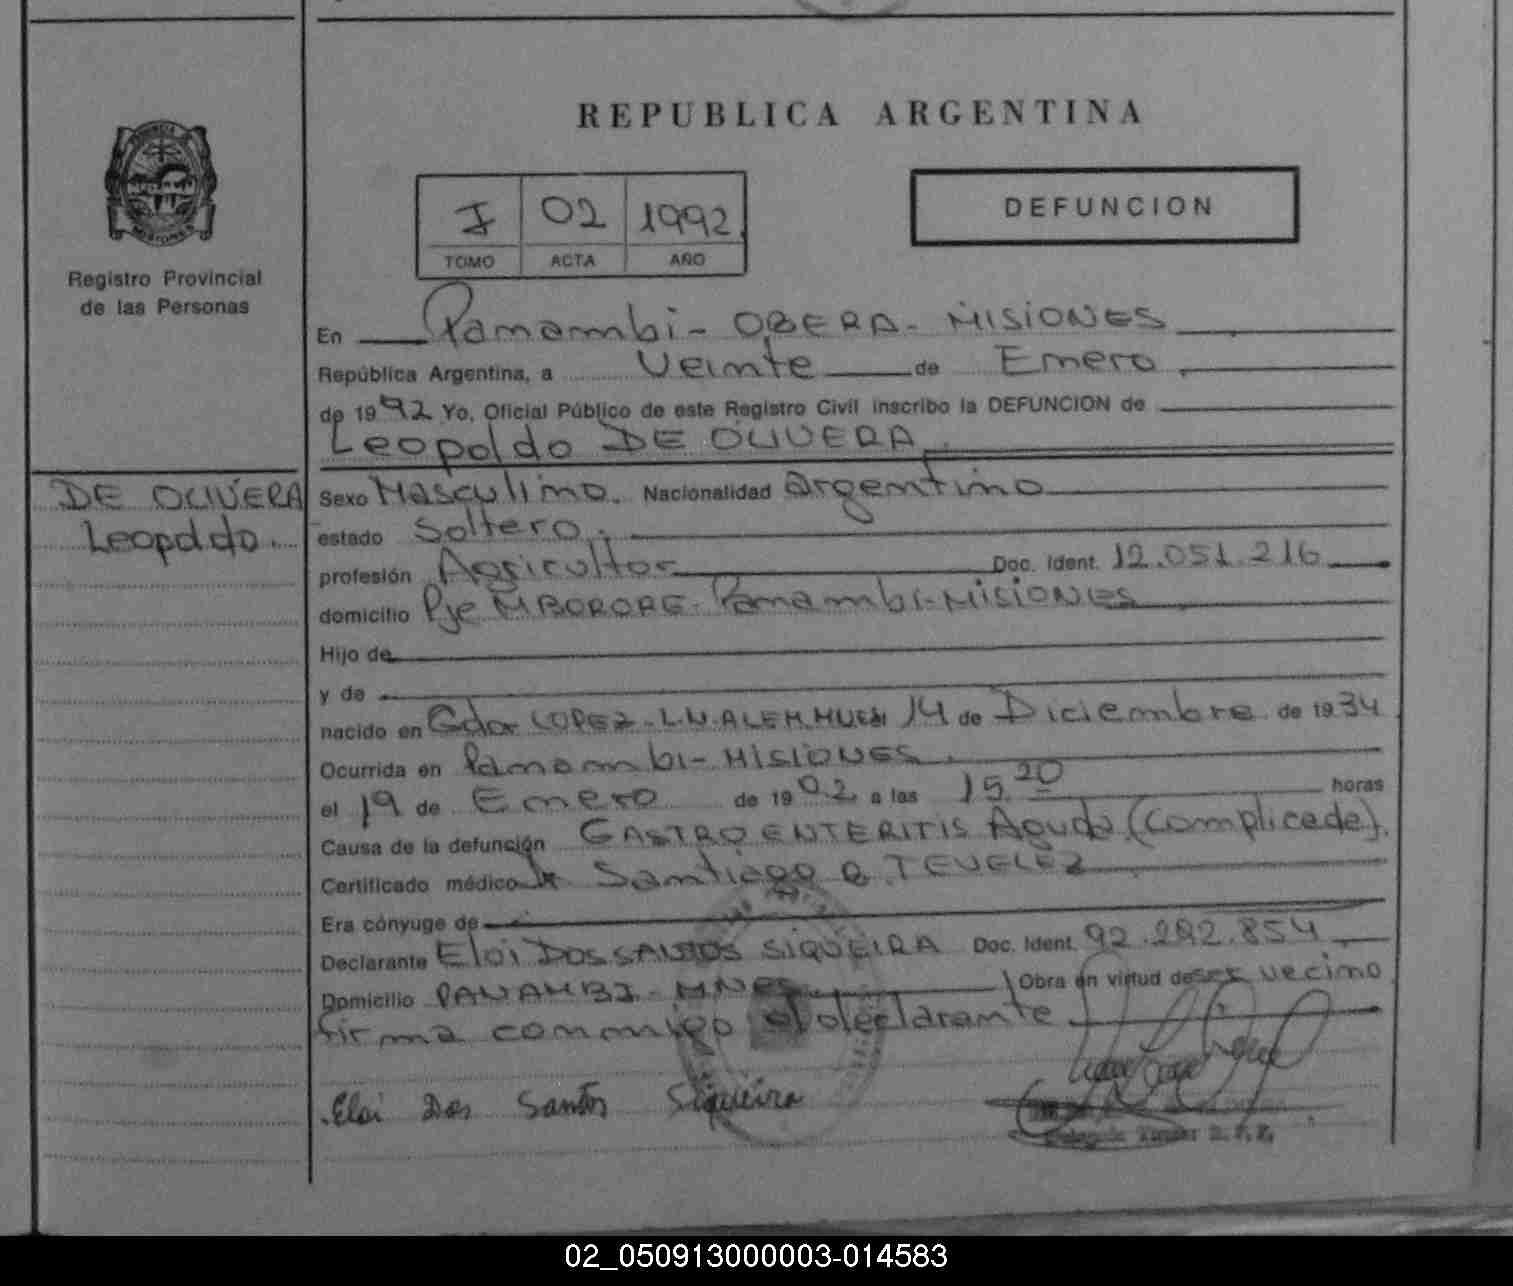 REPUBLICA ARGENTINA
I 02 1992
TOMO ACTA AÑO
DEFUNCION
MISIONES
Registro Provincial
de las Personas
DE OLIVERA
Leopoldo.
En Panambi - OBERA - MISIONES
República Argentina, a Veinte de Enero
de 1992 Yo, Oficial Público de este Registro Civil inscribo la DEFUNCION de
Leopoldo DE OLIVERA
Sexo Masculino. Nacionalidad Argentino
estado Soltero.
profesión Agricultor Doc. Ident. 12.051.216
domicilio Pje MBORORE - Panambi - MISIONES
Hijo de
y de
nacido en Gdor LOPEZ - L.N. ALEM. 14 de Diciembre de 1934
Ocurrida en Panambi - MISIONES
el 19 de Enero de 1902 a las 15 20 horas
Causa de la defunción GASTROENTERITIS Aguda (Complicada).
Certificado médico Santiago TEVELEZ
Era cónyuge de
Declarante Eloi DOS SANTOS SIQUEIRA Doc. Ident. 92.292.854
Domicilio PANAMBI - MNES. Obra en virtud de ser vecino
firma conmigo el declarante
Eloi Dos Santos Siqueira
02_050913000003-014583